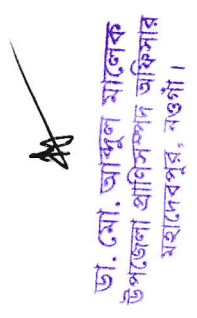 ডা. মো. আব্দুল মালেক
উপজেলা প্রাণিসম্পদ অফিসার
মহাদেবপুর, নওগাঁ।